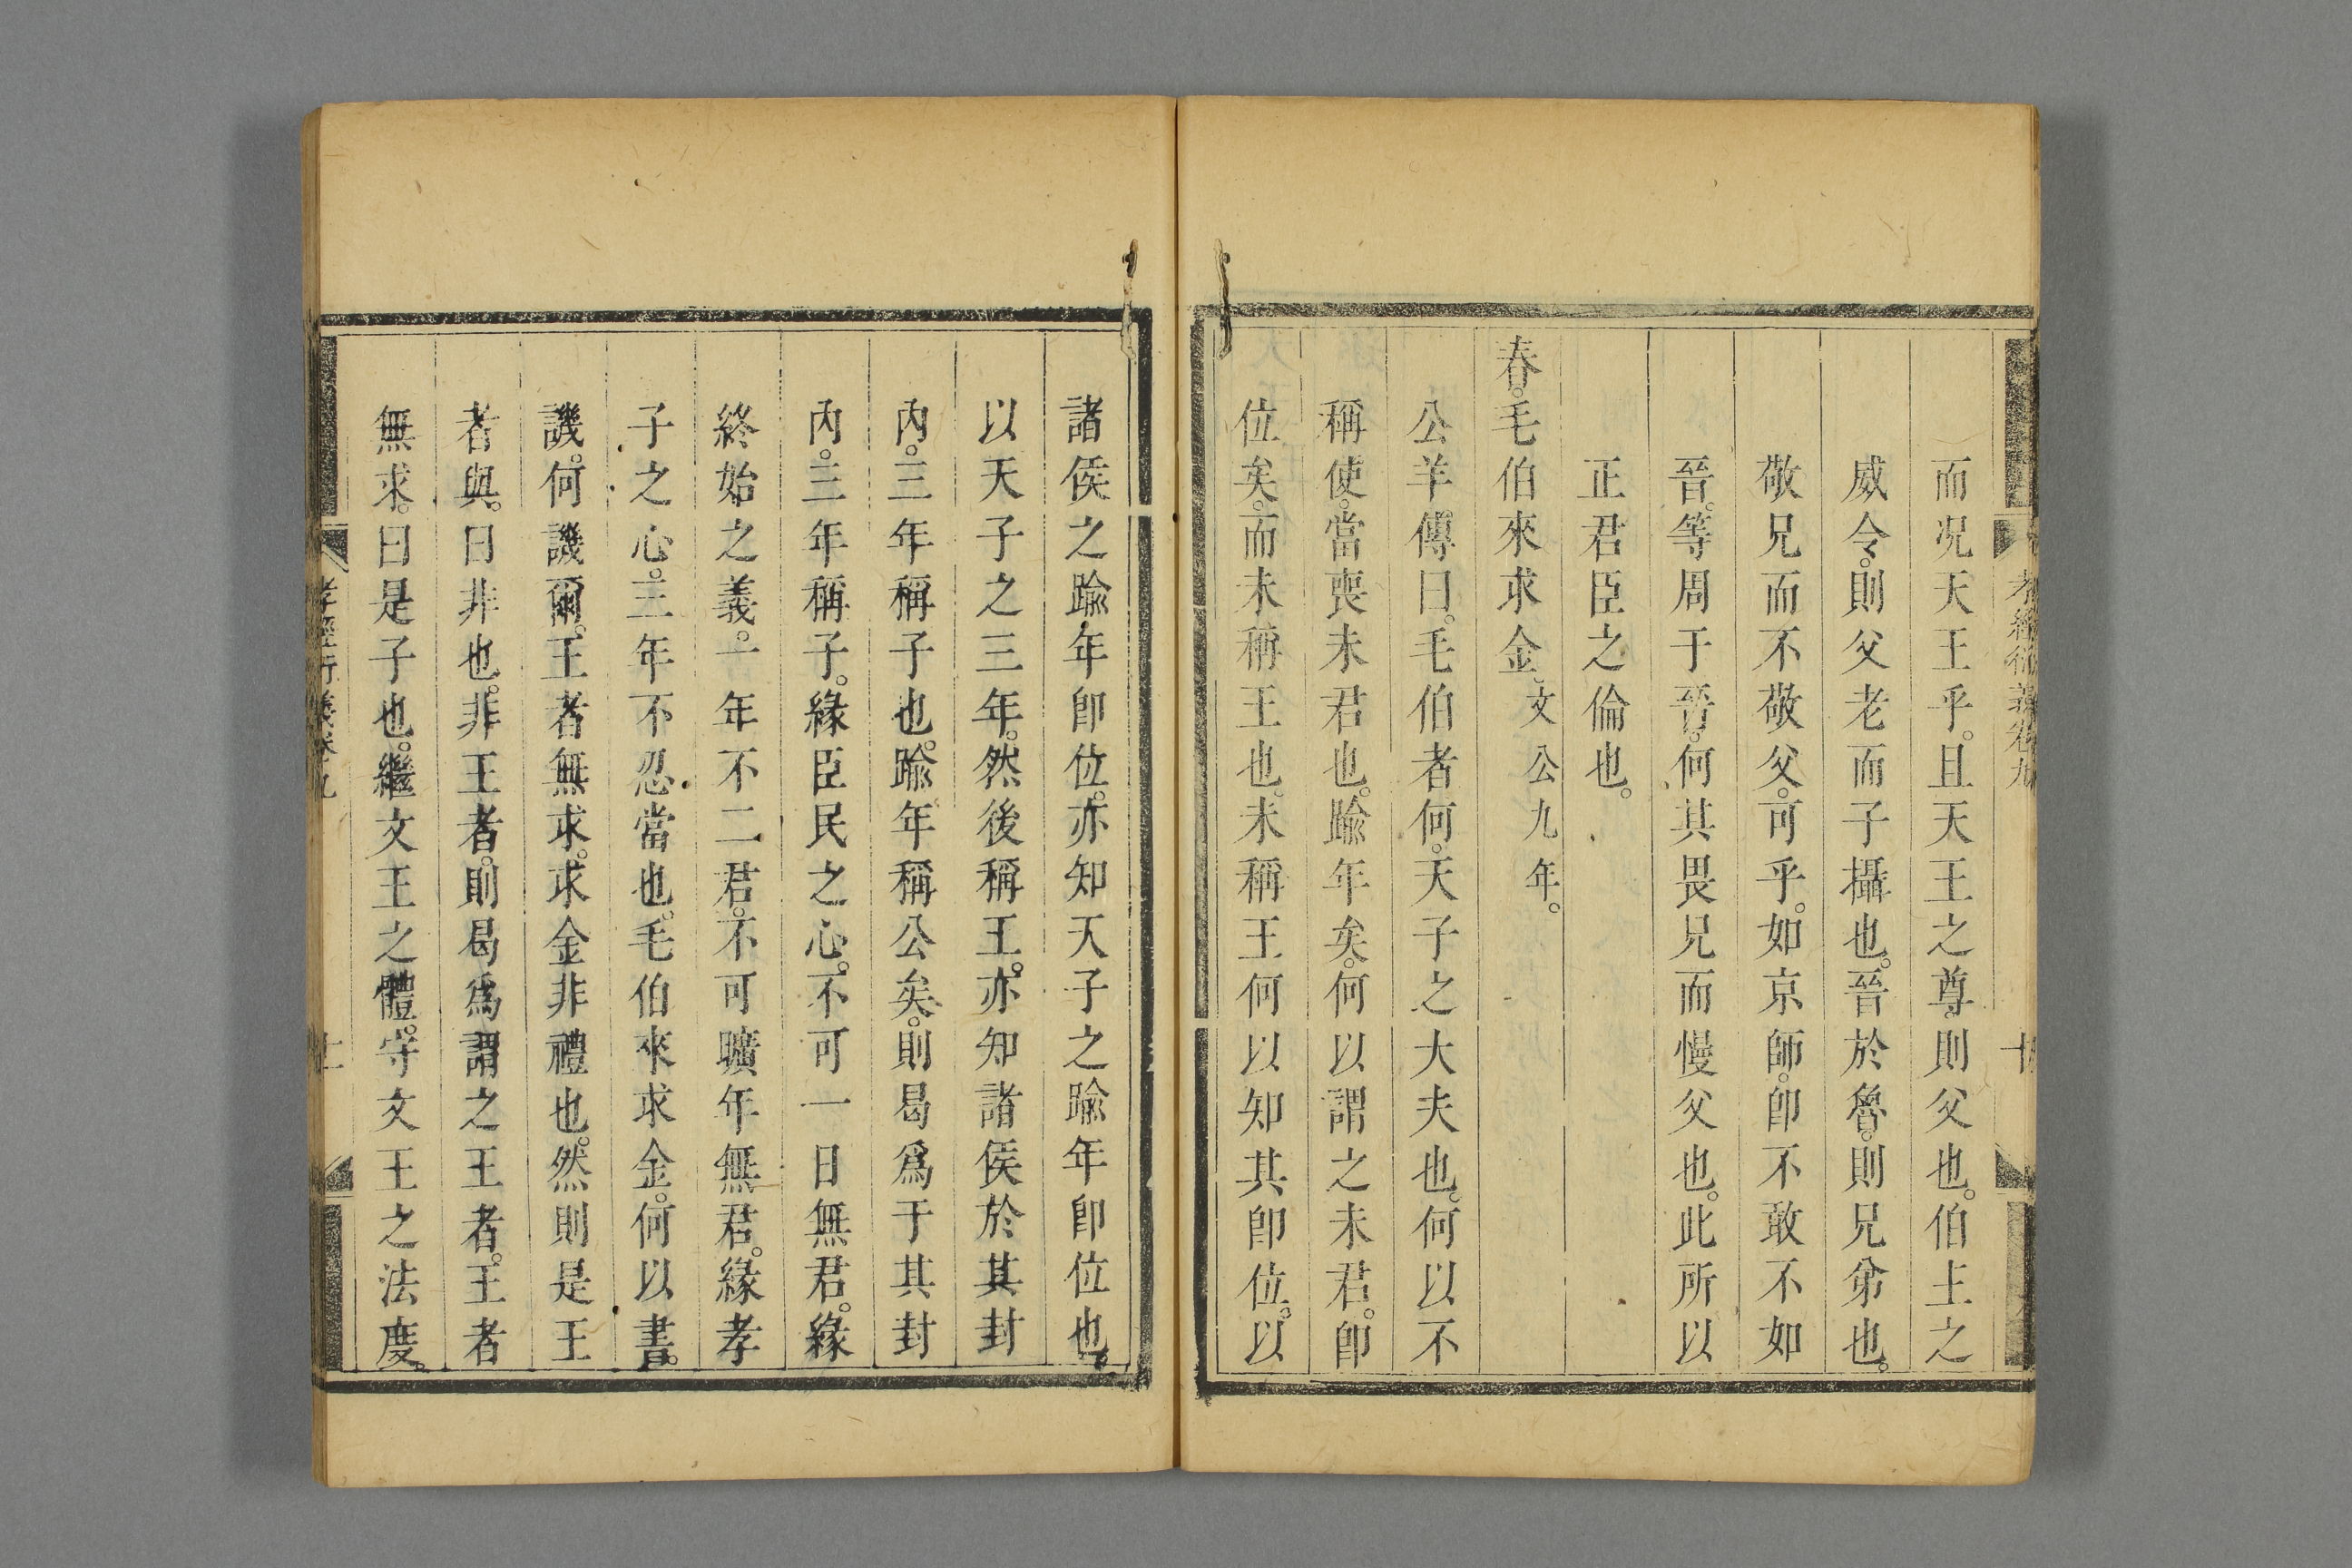 孝經衍義卷九
十
而況天王乎。且天王之尊。則父也。伯士之
威令。則父老而子攝也。晉於魯。則兄弟也。
敬兄而不敬父。可乎。如京師。卽不敢不如
晉。等周于晉。何其畏兄而慢父也。此所以
正君臣之倫也。
春。毛伯來求金。文公九年。
公羊傳曰。毛伯者何。天子之大夫也。何以不
稱使。當喪未君也。踰年矣。何以謂之未君。卽
位矣。而未稱王也。未稱王何以知其卽位。以
諸侯之踰年卽位。亦知天子之踰年卽位也。
以天子之三年。然後稱王。亦知諸侯於其封
內。三年稱子也。踰年稱公矣。則曷爲于其封
內。三年稱子。緣臣民之心。不可一日無君。緣
終始之義。一年不二君。不可曠年無君。緣孝
子之心。三年不忍當也。毛伯來求金。何以書。
譏。何譏爾。王者無求。求金非禮也。然則是王
者與。曰非也。非王者。則曷爲謂之王者。王者
無求。曰是子也。繼文王之體。守文王之法度。
孝經衍義卷九